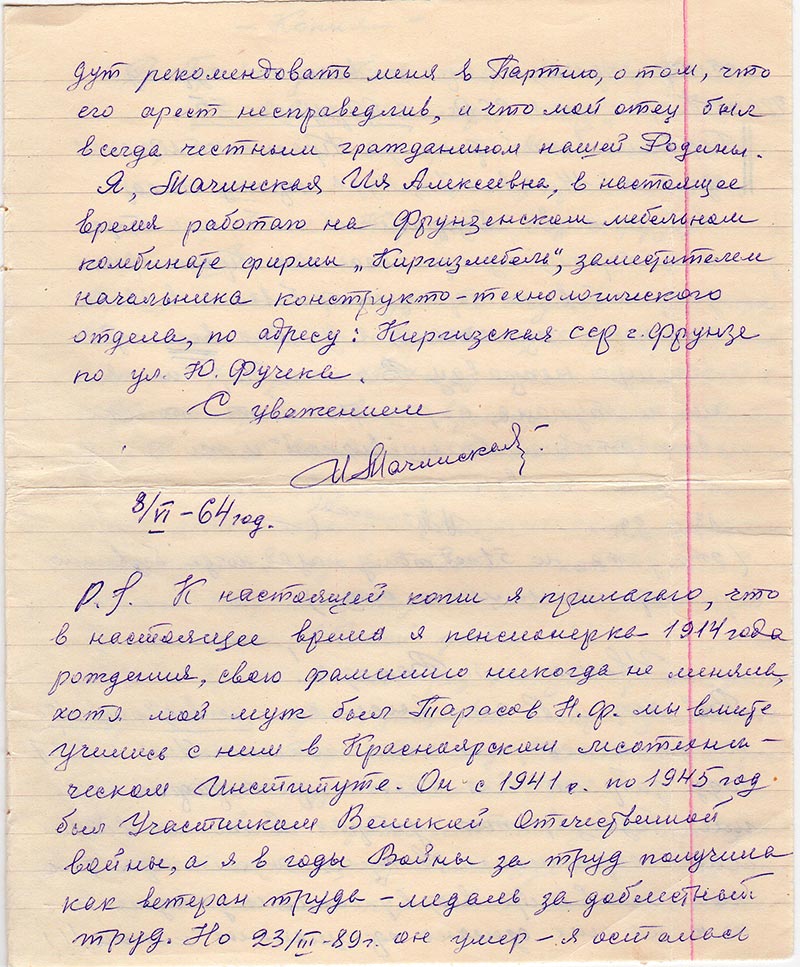 дут рекомендовать меня в Партию, о том, что
его арест несправедлив, и что мой отец был
всегда честным гражданином нашей Родины.
Я, Мачинская Ия Алексеевна, в настоящее
время работаю на Фрунзенском мебельном
комбинате фирмы „Киргизмебель“, заместителем
начальника конструкто-технологического
отдела, по адресу: Киргизская ССР г. Фрунзе
по ул. Ю. Фучека.
С уважением
И Мачинская
8/VI-64 год.
P.S. К настоящей копии я прилагаю, что
в настоящее время я пенсионерка 1914 года
рождения, свою фамилию никогда не меняла,
хотя мой муж был Тарасов Н.Ф. мы вместе
учились с ним в Красноярском лесотехни-
ческом Институте. Он с 1941 г. по 1945 год
был Участником Великой Отечественной
войны, а я в годы Войны за труд получила
как ветеран труда - медаль за доблестный
труд. Но 23/III-89г. он умер - я осталась